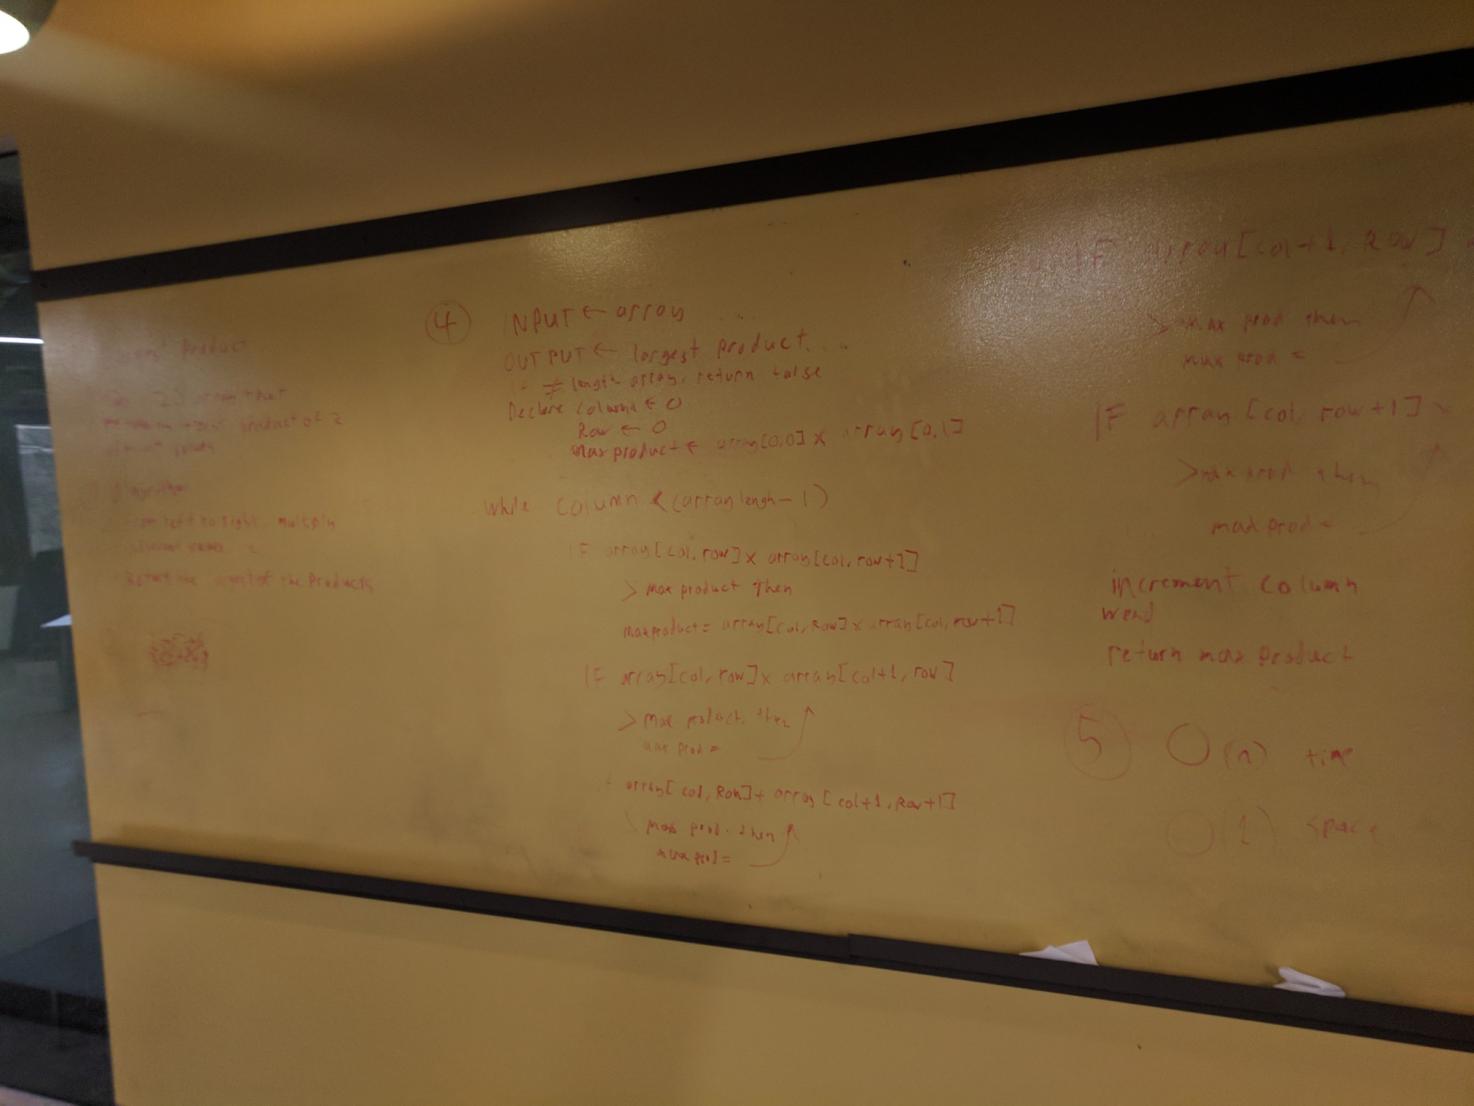 Product
2D array that
product of 2
Algorithm
From left to right, multiply
Return the largest of the products
4
INPUT ← array
OUTPUT ← largest product
If ≠ length array, return false
Declare column ← 0
Row ← 0
max product ← array[0,0] x array[0,1]
While column < (array lengh - 1)
IF array[col, row] x array[col, row+1]
> max product then
maxproduct = array[col, Row] x array[col, row+1]
IF array[col, row] x array[col+1, row]
> max product, then
max prod =
array[col, Row] + array[col+1, Row+1]
> max prod. then
max prod =
IF array[col+1, Row]
> max prod then
max prod =
IF array[col, row+1] x
> max prod then
max prod =
increment column
wend
return max product
5 O(n) time
O(1) space